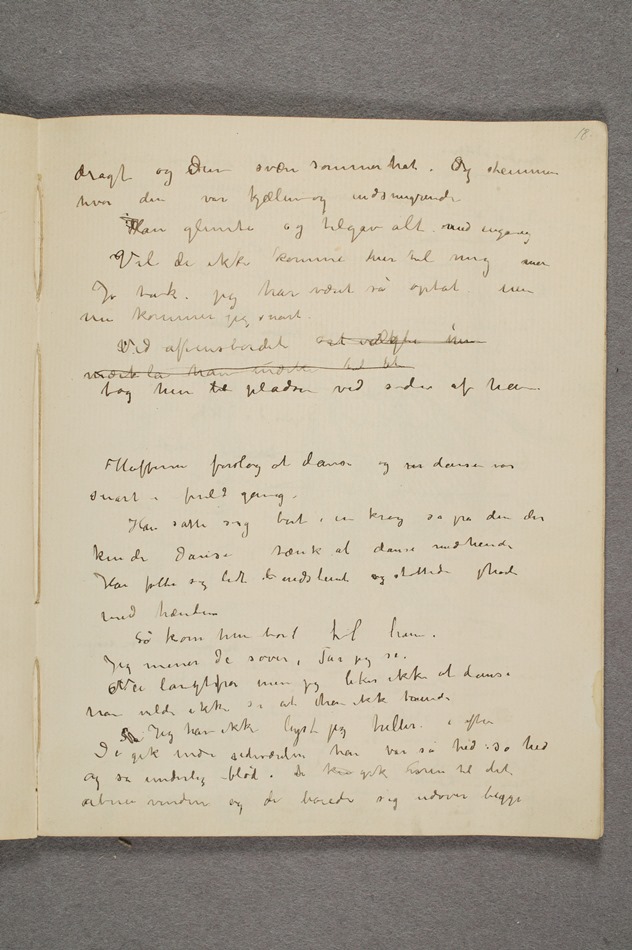 18.
dragt og Den svær sommerhat. Og stemmen
hvor den var kjælen og indsmigrende
Han glemte og tilgav alt med engang
Vil de ikke komme hen til mig mer
Jo tak. jeg har været så optat men
nu kommer jeg snart.
Ved aftensbordet
mærk la han
tog hun te pladsen ved siden af ham.
foreslog at danse og så dansen var
snart i fuld gang.
Han satte sig bort i en krog så på den der
kunde danse tænk at danse med hende
Han følte sig lidt og støttede
med hænderne
Så kom hun bort til ham.
Jeg mener De sover, Sa jeg så.
Nei langtfra men jeg liker ikke at danse
han vilde ikke si at han ikke kunde
Jeg har ikke lyst jeg heller.
De gik hånden var så hed: så hed
og så underlig blød. De gik frem til det
åbne vindu og de bøiede sig udover begge